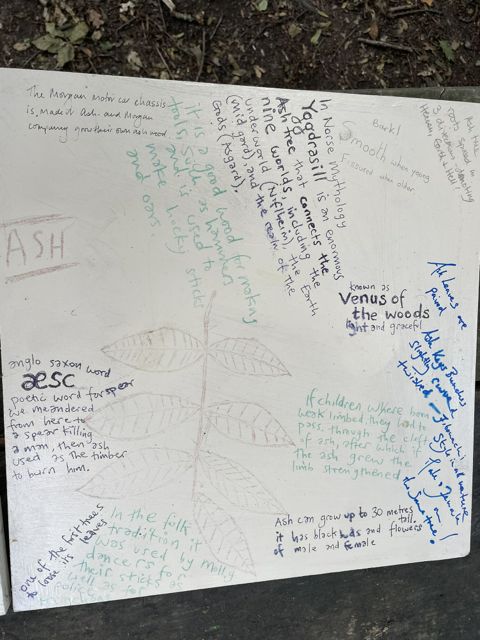 The Morgan Motor car chassis
is made of Ash and Morgan
company grow their own ash wood
it is a good wood for making
tools such as hammers
and is used to
make hockey sticks
and oars
In Norse Mythology
Yggdrasill is an enormous
Ash tree that connects the
nine worlds, including the
underworld (Niflheim), the Earth
(Midgard), and the realm of the
Gods (Asgard).
Bark!
Smooth when young
Fissured when older
Ash tree
roots spread in
3 directions denoting
Heaven, Earth & Hell!
ASH
known as
Venus of
the woods
light and graceful
Ash Leaves are
paired
Ash Keys Bunches
slightly curved
twisted
Male & Female
on
the Same tree!
anglo saxon word
æsc
poetic word for spear
we meandered
from here to
a spear killing
a man, then ash
used as the timber
to burn him.
If children where born
weak limbed, they had to
pass through the cleft
of ash, after which if
the ash grew the
limb strengthened
Ash can grow up to 30 metres
tall.
it has black buds and flowers
of male and female
one of the first trees
to loose its leaves
In the folk
tradition it
was used by molly
dancers for
their sticks as
well as for
police